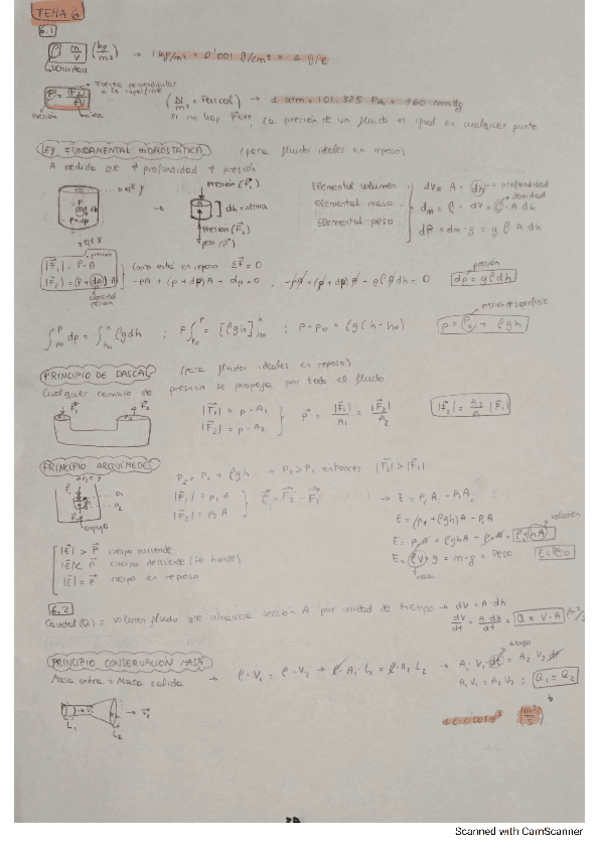 TEMA 6
6.1
ρ = m/V (kg/m³) → 1 kg/m³ = 0'001 g/cm³ = 1 g/l
densidad
Fuerza perpendicular a la superficie
P = F⊥/A (N/m² = Pascal) → 1 atm = 101.325 Pa = 760 mmHg
presión área si no hay Fext, la presión de un fluido es igual en cualquier punto
LEY FUNDAMENTAL HIDROSTÁTICA (para fluidos ideales en reposo)
A medida que + profundidad + presión
Presión (F₁)
dh = altura
Presión (F₂)
peso (P)
Elemental volumen dV = A · dh → profundidad
Elemental masa dm = ρ · dV = ρ · A dh densidad
Elemental peso dP = dm · g = g ρ A dh
|F₁| = P · A presión
|F₂| = (P + dp) A
elemental presión
Como está en reposo ΣF = 0
-pA + (p + dp)A - dp = 0 ; -pA + (p + dp) A - gρA dh = 0 dp = gρdh presión
∫ dp = ∫ ρgdh ; P = [ρgh] ; p - p₀ = ρg(h - h₀) p = p₀ + ρgh
presión de superficie
PRINCIPIO DE PASCAL (para fluidos ideales en reposo)
Cualquier cambio de presión se propaga por todo el fluido.
F₁ F₂
|F₁| = p · A₁
|F₂| = p · A₂
P = |F₁|/A₁ = |F₂|/A₂ |F₂| = A₂/A₁ |F₁|
PRINCIPIO ARQUÍMEDES
P₂ = P₁ + ρgh → P₂ > P₁ entonces |F₂| > |F₁|
|F₁| = p₁ A
|F₂| = p₂ A
E = F₂ - F₁ → E = P₂A - P₁A;
E = (P₁ + ρgh)A - P₁A
E = P₁A + ρghA - P₁A = ρghA volumen
E = ρV · g = m · g = Peso E = Peso
masa
empuje
|E| > P cuerpo asciende
|E| < P cuerpo desciende (se hunde)
|E| = P cuerpo en reposo
6.2
Caudal (Q) = volumen fluido que atraviesa sección A por unidad de tiempo → dV = A · dh
dV/dt = A · dh/dt = Q = V · A (m³/s)
PRINCIPIO CONSERVACIÓN MASA
Masa entra = Masa salida → ρ · V₁ = ρ · V₂ → ρ · A₁ · L₁ = ρ · A₂ L₂ → A₁ · V₁ · dt = A₂ V₂ dt tiempo
A₁ V₁ = A₂ V₂ ; Q₁ = Q₂
L₁ L₂ V₂
m³/s
Scanned with CamScanner